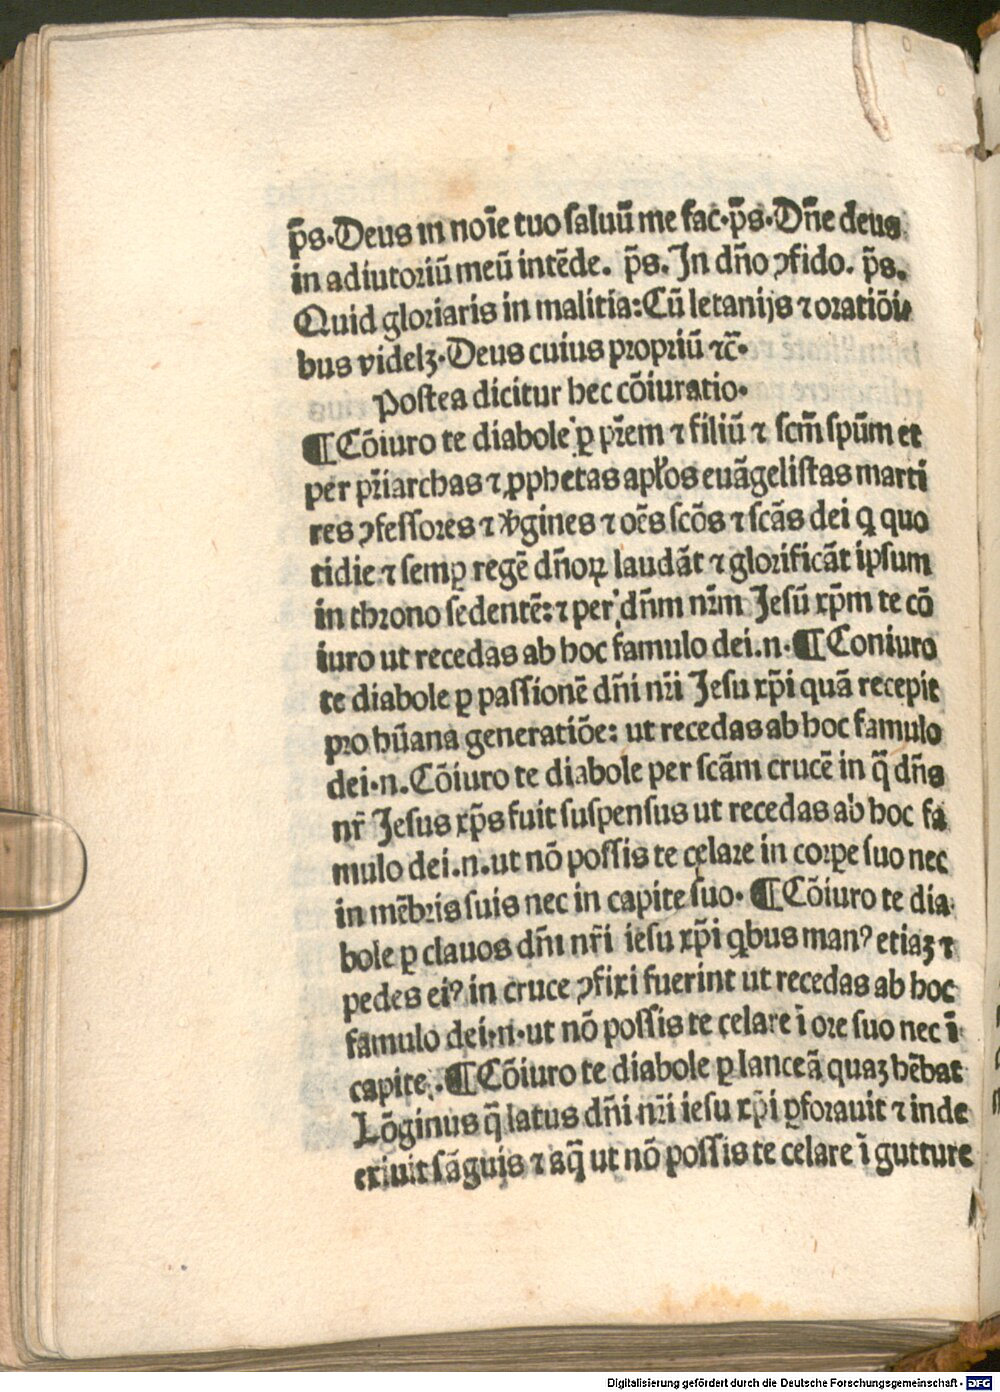 p̄s.Deus in noīe tuo saluū me fac.p̄s.Dn̄e deus
in adiutoriū meū intēde. p̄s. In dn̄o ꝯfido. p̄s.
Quid gloriaris in malitia:Cū letanijs ⁊ oratiōi⸗
bus videlꝫ.Deus cuius propriū ⁊c̄.
Postea dicitur hec cōiuratio.
¶Cōiuro te diabole ꝑ pr̄em ⁊ filiū ⁊ scm̄ spūm et
per pr̄iarchas ⁊ ꝓphetas apłos euāgelistas marti
res ꝯfessores ⁊ v̓gines ⁊ oēs scōs ⁊ scās dei q̨ quo
tidie ⁊ semꝑ regē dn̄oꝝ laudāt ⁊ glorificāt ipsum
in throno sedentē:⁊ per dn̄m nr̄m Jesū xp̄m te cō
iuro ut recedas ab hoc famulo dei.n.¶Coniuro
te diabole ꝑ passionē dn̄i nr̄i Jesu xp̄i quā recepit
pro hūana generatiōe: ut recedas ab hoc famulo
dei.n.Cōiuro te diabole per scām crucē in q̄ dn̄s
nr̄ Jesus xp̄s fuit suspensus ut recedas ab hoc fa
mulo dei.n.ut nō possis te celare in corꝑe suo nec
in mēbris suis nec in capite suo. ¶Cōiuro te dia
bole ꝑ clauos dn̄i nr̄i iesu xp̄i q̨bus manꝰ etiaꝫ ⁊
pedes eiꝰ in cruce ꝯfixi fuerint ut recedas ab hoc
famulo dei.n.ut nō possis te celare ī ore suo nec ī
capite.¶Cōiuro te diabole ꝑ lanceā quaꝫ hēbat
Lōginus q̄ latus dn̄i nr̄i iesu xp̄i ꝑforauit ⁊ inde
exiuit sāguis ⁊ aq̄ ut nō possis te celare ī gutture
Digitalisierung gefördert durch die Deutsche Forschungsgemeinschaft - DFG